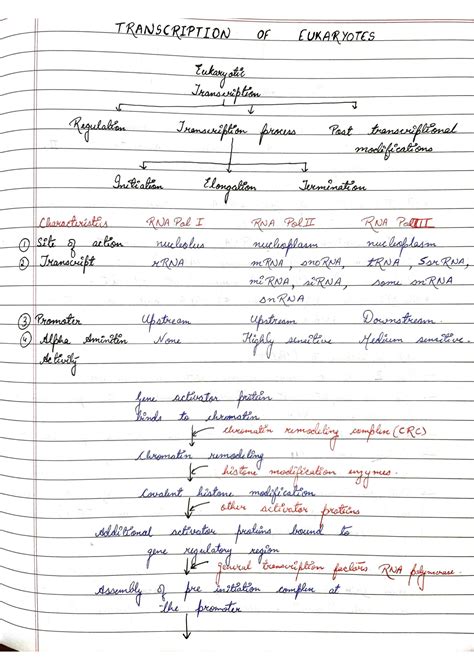 TRANSCRIPTION OF EUKARYOTES
Eukaryotic
Transcription
Regulation Transcription process Post transcriptional
modifications
Initiation Elongation Termination
Characteristics RNA Pol I RNA Pol II RNA Pol III
① Site of action nucleolus nucleoplasm nucleoplasm
② Transcript rRNA mRNA, snoRNA, tRNA, 5srRNA,
miRNA, siRNA, some snRNA
snRNA
③ Promoter Upstream Upstream Downstream.
④ Alpha Aminitin None Highly sensitive Medium sensitive.
Activity
Gene activator protein
binds to chromatin
chromatin remodeling complex (CRC)
Chromatin remodeling
histone modification enzymes.
Covalent histone modification
other activator proteins
Additional activator proteins bound to
gene regulatory region
general transcription factors RNA polymerase.
Assembly of pre initiation complex at
the promoter